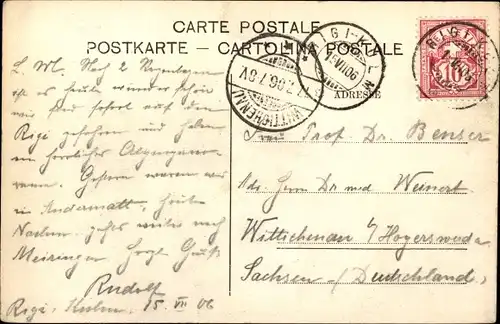 CARTE POSTALE
POSTKARTE – CARTOLINA POSTALE
ADRESSE
RIGI-KULM
15.VII.06
WITTICHENAU
17.7.06. 7-8V
10
L. M. Nach 2 Regentagen
ist es heute wunderschön
wir sind sofort auf den
Rigi gefahren und haben
ein herrliches Alpenpano-
rama. Gestern waren wir
in Andermatt, heute
Nachm. gehts weiter nach
Meiringen Herzl Grüße
Rudolf
Rigi, Kulm 15 VII 06
Prof. Dr. Benser
Adr. Herrn Dr. med Weinert
Wittichenau b/ Hoyerswerda
Sachsen / Deutschland